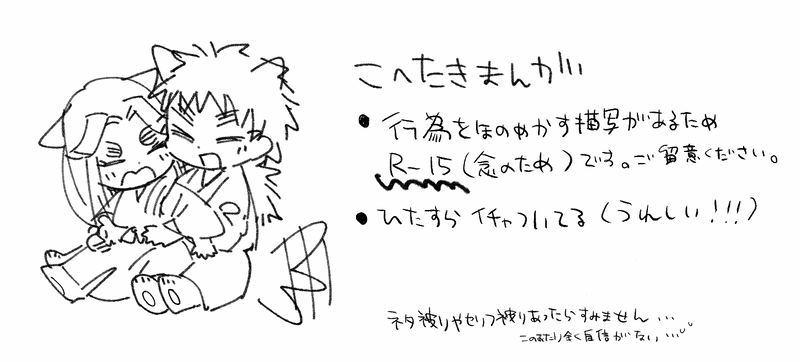 こへたきまんが
● 行為をほのめかす描写があるため
R-15(念のため)です。ご留意ください。
● ひたすらイチャついてる(うれしい!!!)
ネタ被りやセリフ被りあったらすみません…
このあたり全く自信がない…